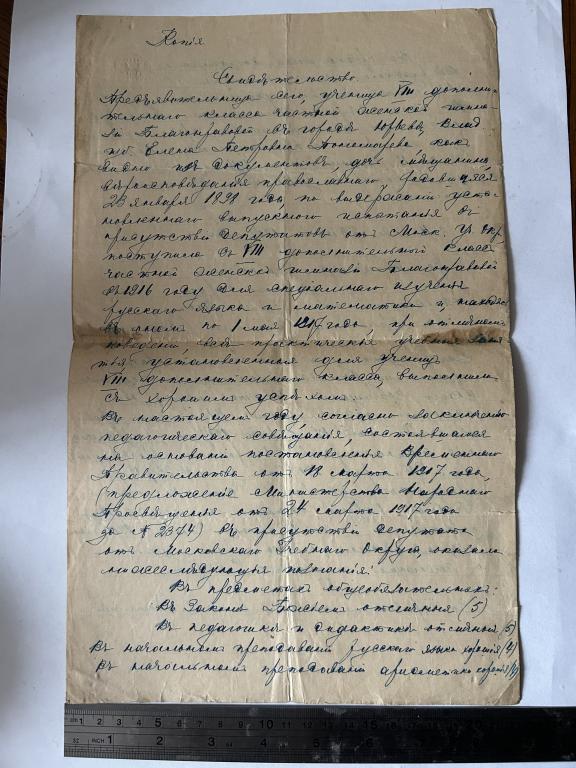 Копія
Свидѣтельство
Предъявительница сего, ученица VIII дополни-
тельнаго класса частной женской гимна-
зіи Благонравовой въ городѣ Юрьевѣ, Влад.
губ. Елена Петровна Пономарева, какъ
видно изъ документовъ, дочь мѣщанина
вѣроисповѣданія православнаго, родившаяся
23 января 1898 года, по выдержаніи уста-
новленнаго выпускнаго испытанія въ
присутствіи депутатовъ отъ Моск. уч. окр.
поступила въ VIII дополнительный классъ
частной женской гимназіи Благонравовой
въ 1916 году для спеціальнаго изученія
русскаго языка и математики и,
въ по 1 мая 1917 года, при отличномъ
поведеніи всѣ практическія учебныя заня-
тія, установленныя для ученицъ
VIII дополнительнаго класса, выполнила
съ хорошимъ успѣхомъ
Въ настоящемъ году согласно заключенію
педагогическаго совѣщанія, состоявшагося
на основаніи постановленія Временнаго
Правительства отъ 18 марта 1917 года,
(предложеніе Министерства Народнаго
Просвѣщенія отъ 24 марта 1917 года
за № 2374) въ присутствіи депутата
отъ Московскаго Учебнаго Округа, оказала
нижеслѣдующія познанія:
Въ предметахъ общеобязательныхъ:
Въ Законѣ Божіемъ отличныя (5)
Въ педагогикѣ и дидактикѣ отличныя (5)
Въ начальномъ преподаваніи русскаго языка хорошія (4)
Въ начальномъ преподаваніи ариѳметики хорошія (4)
CM 1 2 3 4 5 6 7 8 9 10
INCH 1 2 3 4